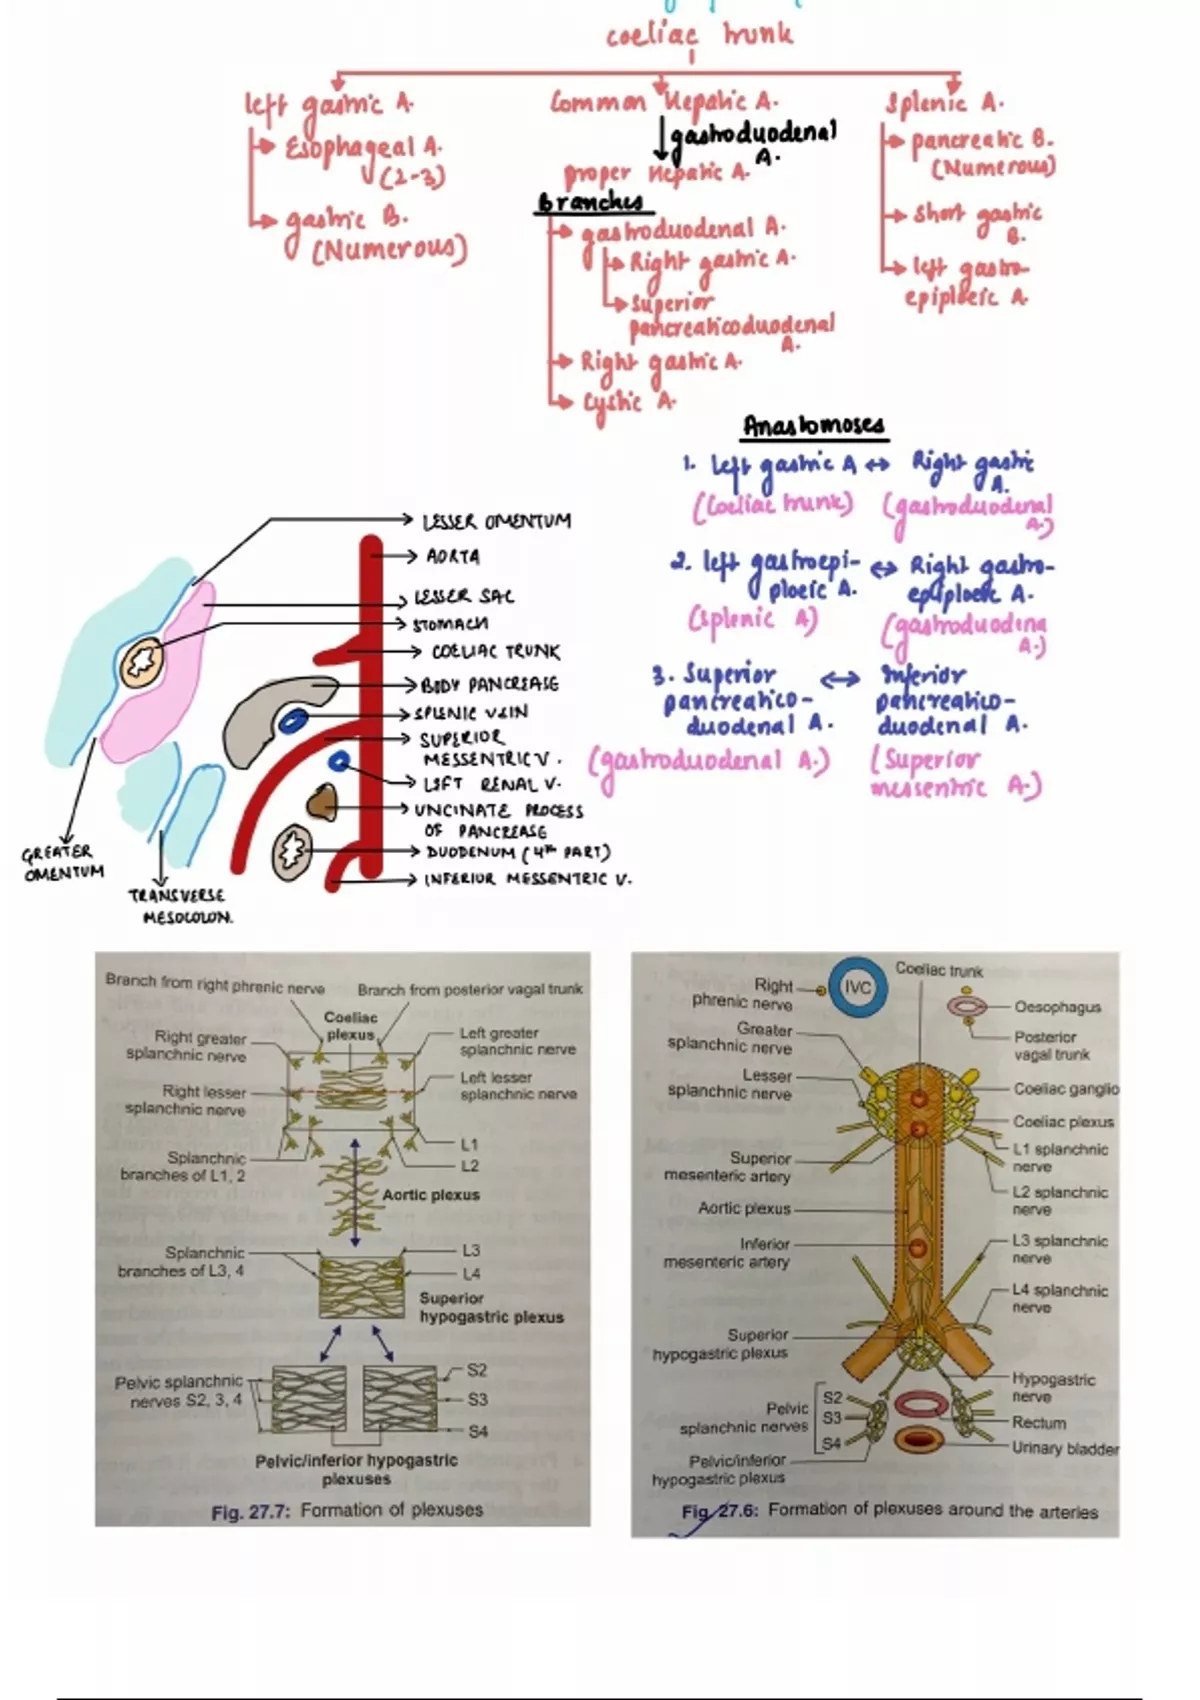 coeliac trunk
left gastric A.
Esophageal A.
(2-3)
gastric B.
(Numerous)
Common Hepatic A.
gastroduodenal
A.
proper Hepatic A.
Branches
gastroduodenal A.
Right gastric A.
Superior
pancreaticoduodenal
A.
Right gastric A.
Cystic A.
Splenic A.
pancreatic B.
(Numerous)
Short gastric
B.
left gastro-
epiploeic A.
Anastomoses
1. Left gastric A ↔ Right gastric
A.
(Coeliac trunk) (gastroduodenal
A.)
2. left gastroepi- ↔ Right gastro-
ploeic A. epiploeic A.
(splenic A) (gastroduodina
A.)
3. Superior ↔ Inferior
pancreatico- pancreatico-
duodenal A. duodenal A.
(gastroduodenal A.) (Superior
messentric A.)
LESSER OMENTUM
AORTA
LESSER SAC
STOMACH
COELIAC TRUNK
BODY PANCREASE
SPLENIC VEIN
SUPERIOR
MESSENTRIC V.
LEFT RENAL V.
UNCINATE PROCESS
OF PANCREASE
DUODENUM (4th PART)
INFERIOR MESSENTRIC V.
GREATER
OMENTUM
TRANSVERSE
MESOCOLON.
Branch from right phrenic nerve
Branch from posterior vagal trunk
Coeliac
plexus
Right greater
splanchnic nerve
Left greater
splanchnic nerve
Right lesser
splanchnic nerve
Left lesser
splanchnic nerve
Splanchnic
branches of L1, 2
L1
L2
Aortic plexus
Splanchnic
branches of L3, 4
L3
L4
Superior
hypogastric plexus
Pelvic splanchnic
nerves S2, 3, 4
S2
S3
S4
Pelvic/inferior hypogastric
plexuses
Fig. 27.7: Formation of plexuses
Coeliac trunk
Right
phrenic nerve
IVC
Oesophagus
Greater
splanchnic nerve
Posterior
vagal trunk
Lesser
splanchnic nerve
Coeliac ganglio
Coeliac plexus
L1 splanchnic
nerve
Superior
mesenteric artery
L2 splanchnic
nerve
Aortic plexus
Inferior
mesenteric artery
L3 splanchnic
nerve
L4 splanchnic
nerve
Superior
hypogastric plexus
Hypogastric
nerve
Pelvic
splanchnic nerves
S2
S3
S4
Rectum
Urinary bladder
Pelvic/inferior
hypogastric plexus
Fig. 27.6: Formation of plexuses around the arteries